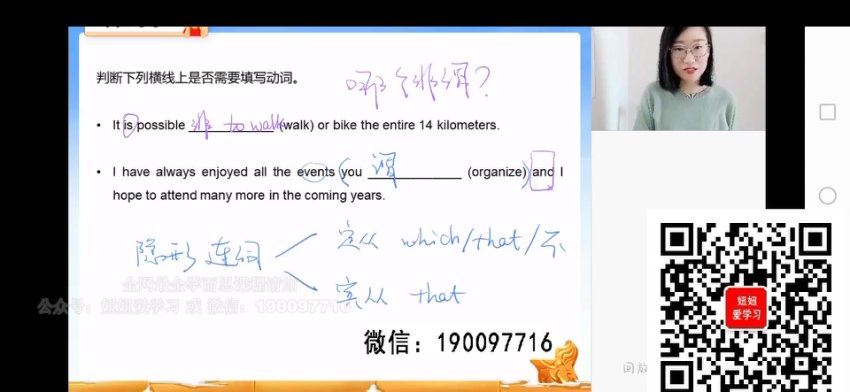 判断下列横线上是否需要填写动词。
哪个非谓?
• It is possible 非 to walk (walk) or bike the entire 14 kilometers.
• I have always enjoyed all the events (you 谓 (organize)) and I
hope to attend many more in the coming years.
隐形连词
定从 which/that/不
宾从 that
公众号：妞妞爱学习 或 微信：190097716
微信：190097716
妞妞
爱学习
回放